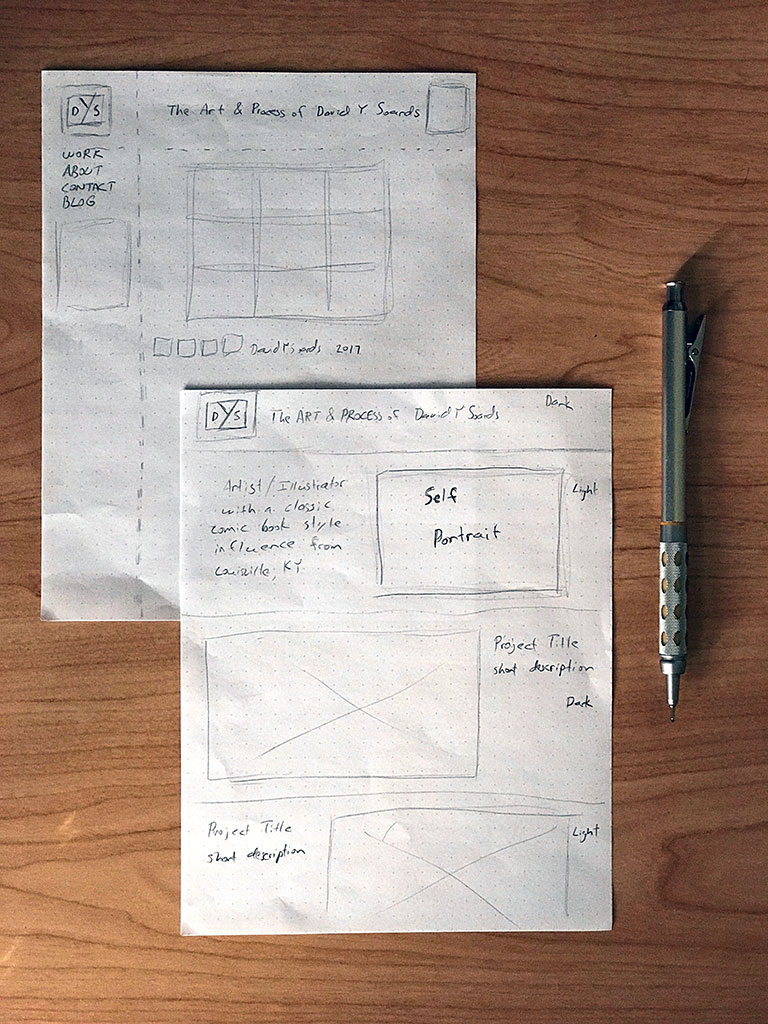 DYS
The Art & Process of David Y Soards
WORK
ABOUT
CONTACT
BLOG
David Y Soards 2017
DYS
The ART & PROCESS of David Y Soards
Dark
Artist/Illustrator
with a classic
comic book style
influence from
Louisville, KY.
Self
Portrait
Light
Project Title
short description
Dark
Project Title
short description
Light